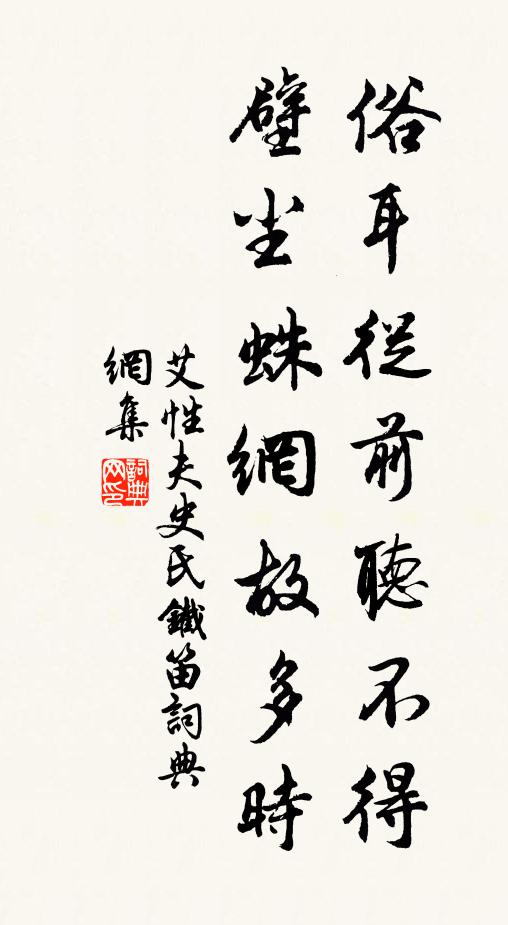 俗耳從前聽不得
壁尘蛛網故多時
艾性夫史民鐵笛詞典
網集
詞典
网印